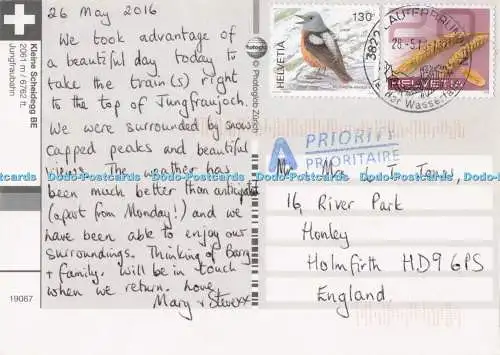 Kleine Scheidegg BE
2061 m / 6762 ft.
Jungfraubahn
19067
26 May 2016
We took advantage of
a beautiful day today to
take the train(s) right
to the top of Jungfraujoch.
We were surrounded by snow
capped peaks and beautiful
views. The weather has
been much better than anticipated
(apart from Monday!) and we
have been able to enjoy our
surroundings. Thinking of Barry
+ family. Will be in touch
when we return. Love,
Mary + Steve xx
photoglob
© Photoglob Zürich
130
HELVETIA
HELVETIA
3822 LAUTERBRUNNEN
A PRIORITY
PRIORITAIRE
Mr Mrs Town,
16, River Park
Honley
Holmfirth HD9 6PS
England.
Dodo-Postcards Dodo-Postcards Dodo-Postcards Dodo-Postcards